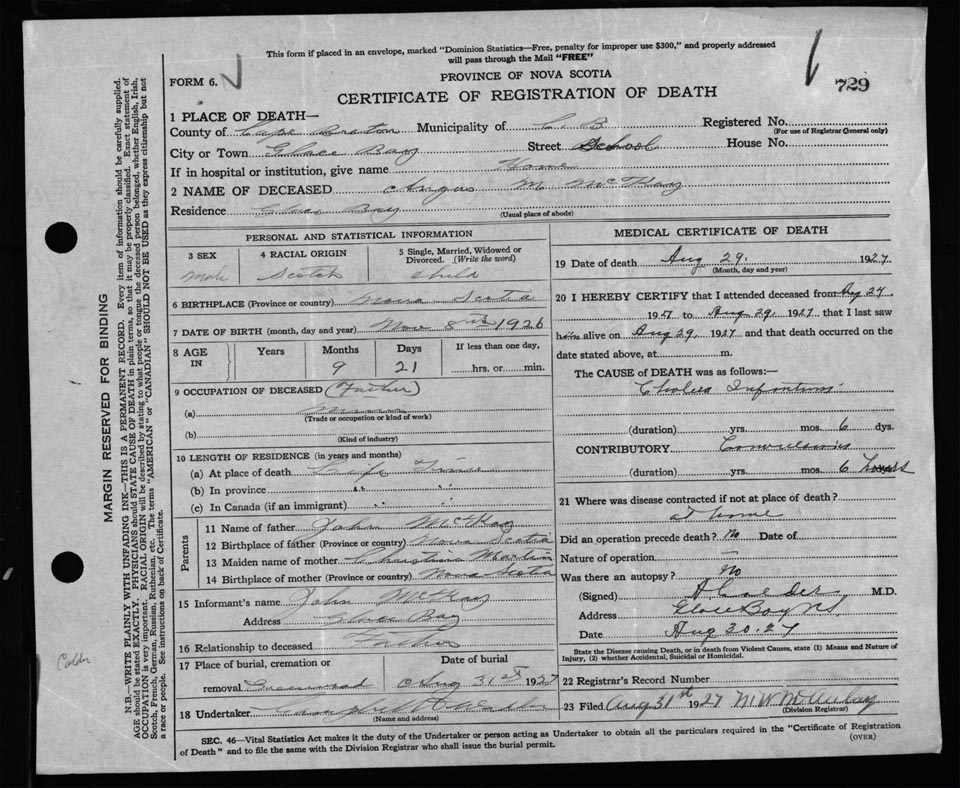 This form if placed in an envelope, marked "Dominion Statistics—Free, penalty for improper use $300," and properly addressed
will pass through the Mail "FREE"
FORM 6.
PROVINCE OF NOVA SCOTIA
729
CERTIFICATE OF REGISTRATION OF DEATH
1 PLACE OF DEATH—
County of Cape Breton Municipality of C. B Registered No.
(For use of Registrar General only)
City or Town Glace Bay Street School House No.
If in hospital or institution, give name Home
2 NAME OF DECEASED Angus M McKay
Residence Glace Bay
(Usual place of abode)
PERSONAL AND STATISTICAL INFORMATION
3 SEX 4 RACIAL ORIGIN 5 Single, Married, Widowed or
Divorced. (Write the word)
Male Scotch Child
6 BIRTHPLACE (Province or country) Nova Scotia
7 DATE OF BIRTH (month, day and year) Nov 8th 1926
8 AGE IN Years Months Days If less than one day,
9 21 hrs. or min.
9 OCCUPATION OF DECEASED (Father)
(a)
(Trade or occupation or kind of work)
(b)
(Kind of industry)
10 LENGTH OF RESIDENCE (in years and months)
(a) At place of death Life Time
(b) In province
(c) In Canada (if an immigrant)
Parents
11 Name of father John McKay
12 Birthplace of father (Province or country) Nova Scotia
13 Maiden name of mother Christina
14 Birthplace of mother (Province or country) Nova Scotia
15 Informant's name John McKay
Address Glace Bay
16 Relationship to deceased Father
17 Place of burial, cremation or Date of burial
removal Greenwood Aug 31st 1927
18 Undertaker
(Name and address)
MEDICAL CERTIFICATE OF DEATH
19 Date of death Aug 29. 1927
(Month, day and year)
20 I HEREBY CERTIFY that I attended deceased from Aug 27
1927 to Aug 29, 1927 that I last saw
him alive on Aug 29, 1927 and that death occurred on the
date stated above, at m.
The CAUSE of DEATH was as follows:—
Cholera Infantum
(duration) yrs. mos. 6 dys.
CONTRIBUTORY Convulsions
(duration) yrs. mos. 6 hours
21 Where was disease contracted if not at place of death?
at home
Did an operation precede death? No Date of
Nature of operation —
Was there an autopsy? No
(Signed) M.D.
Address Glace Bay NS
Date Aug 30.27
State the Disease causing Death, or in death from Violent Causes, state (1) Means and Nature of
Injury, (2) whether Accidental, Suicidal or Homicidal.
22 Registrar's Record Number
23 Filed Aug 31st 1927 M W
(Division Registrar)
SEC. 46—Vital Statistics Act makes it the duty of the Undertaker or person acting as Undertaker to obtain all the particulars required in the "Certificate of Registration
of Death" and to file the same with the Division Registrar who shall issue the burial permit.
(OVER)
MARGIN RESERVED FOR BINDING
N.B.—WRITE PLAINLY WITH UNFADING INK—THIS IS A PERMANENT RECORD. Every item of information should be carefully supplied.
AGE should be stated EXACTLY. PHYSICIANS should STATE CAUSE OF DEATH in plain terms, so that it may be properly classified. Exact statement of
OCCUPATION is very important. RACIAL ORIGIN will be described by stating to what people or tongue the deceased person belonged, whether English, Irish,
Scotch, French, German, Russian, Ruthenian, etc. The terms "AMERICAN" or "CANADIAN" SHOULD NOT BE USED as they express citizenship but not
a race or people. See instructions on back of Certificate.